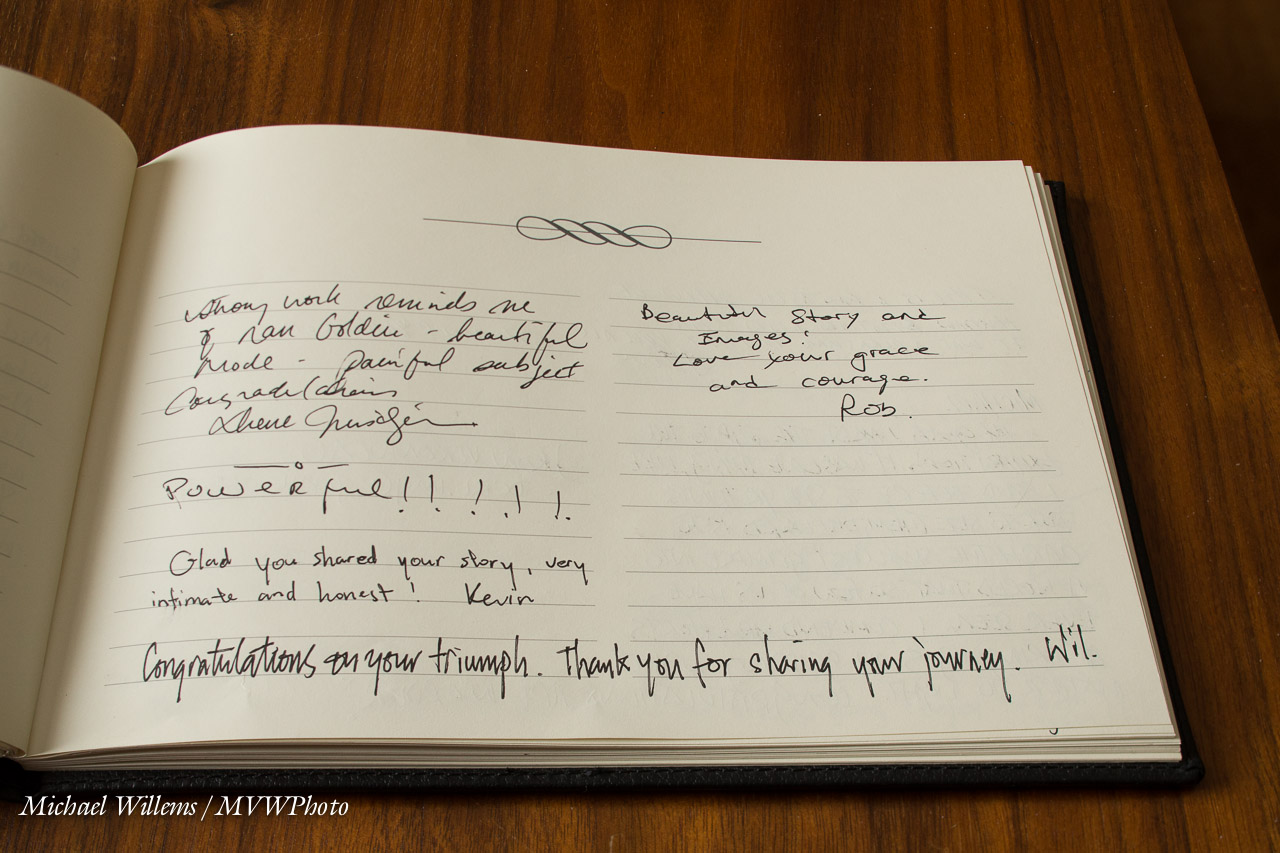 Strong work reminds me
of Nan Goldin - beautiful
mode - painful subject
Congradulations
Powerful!!!!!
Glad you shared your story, very
intimate and honest! Kevin
Beautiful Story and
Images!
Love your grace
and courage.
Rob.
Congratulations on your triumph. Thank you for sharing your journey. Wil.
Michael Willems / MVWPhoto